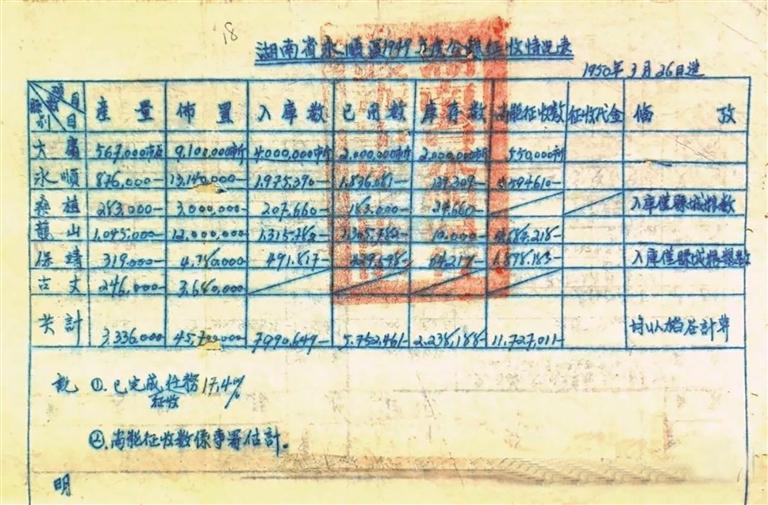 18
湖南省永順區1949年度公糧征收情況表
1950年3月26日造
項目 縣別 數目 產量 佈置 入庫數 已用數 庫存數 尚能征收數 征收代金 備攷
大庸 567,000市石 9,100,000市斤 4,000,000市斤 2,000,000市斤 2,000,000市斤 550,000市斤
永順 876,000— 13,140,000— 1,975,390— 1,836,081— 139,309—
桑植 283,000— 3,000,000— 207,660— 183,000— 24,660— 入庫僅縣城糧數
龍山 1,045,000— 12,000,000— 10,000—
保靖 319,000— 4,780,000 491,817— 入庫僅縣城
古丈 246,000— 3,680,000—
共計 3,336,000— 45,700,000— 7,990,649— 5,752,461— 2,238,188— 11,727,011— 均以稻谷計算
說 ①.已完成征收任務17.4%
②.尚能征收數係專署估計。
明